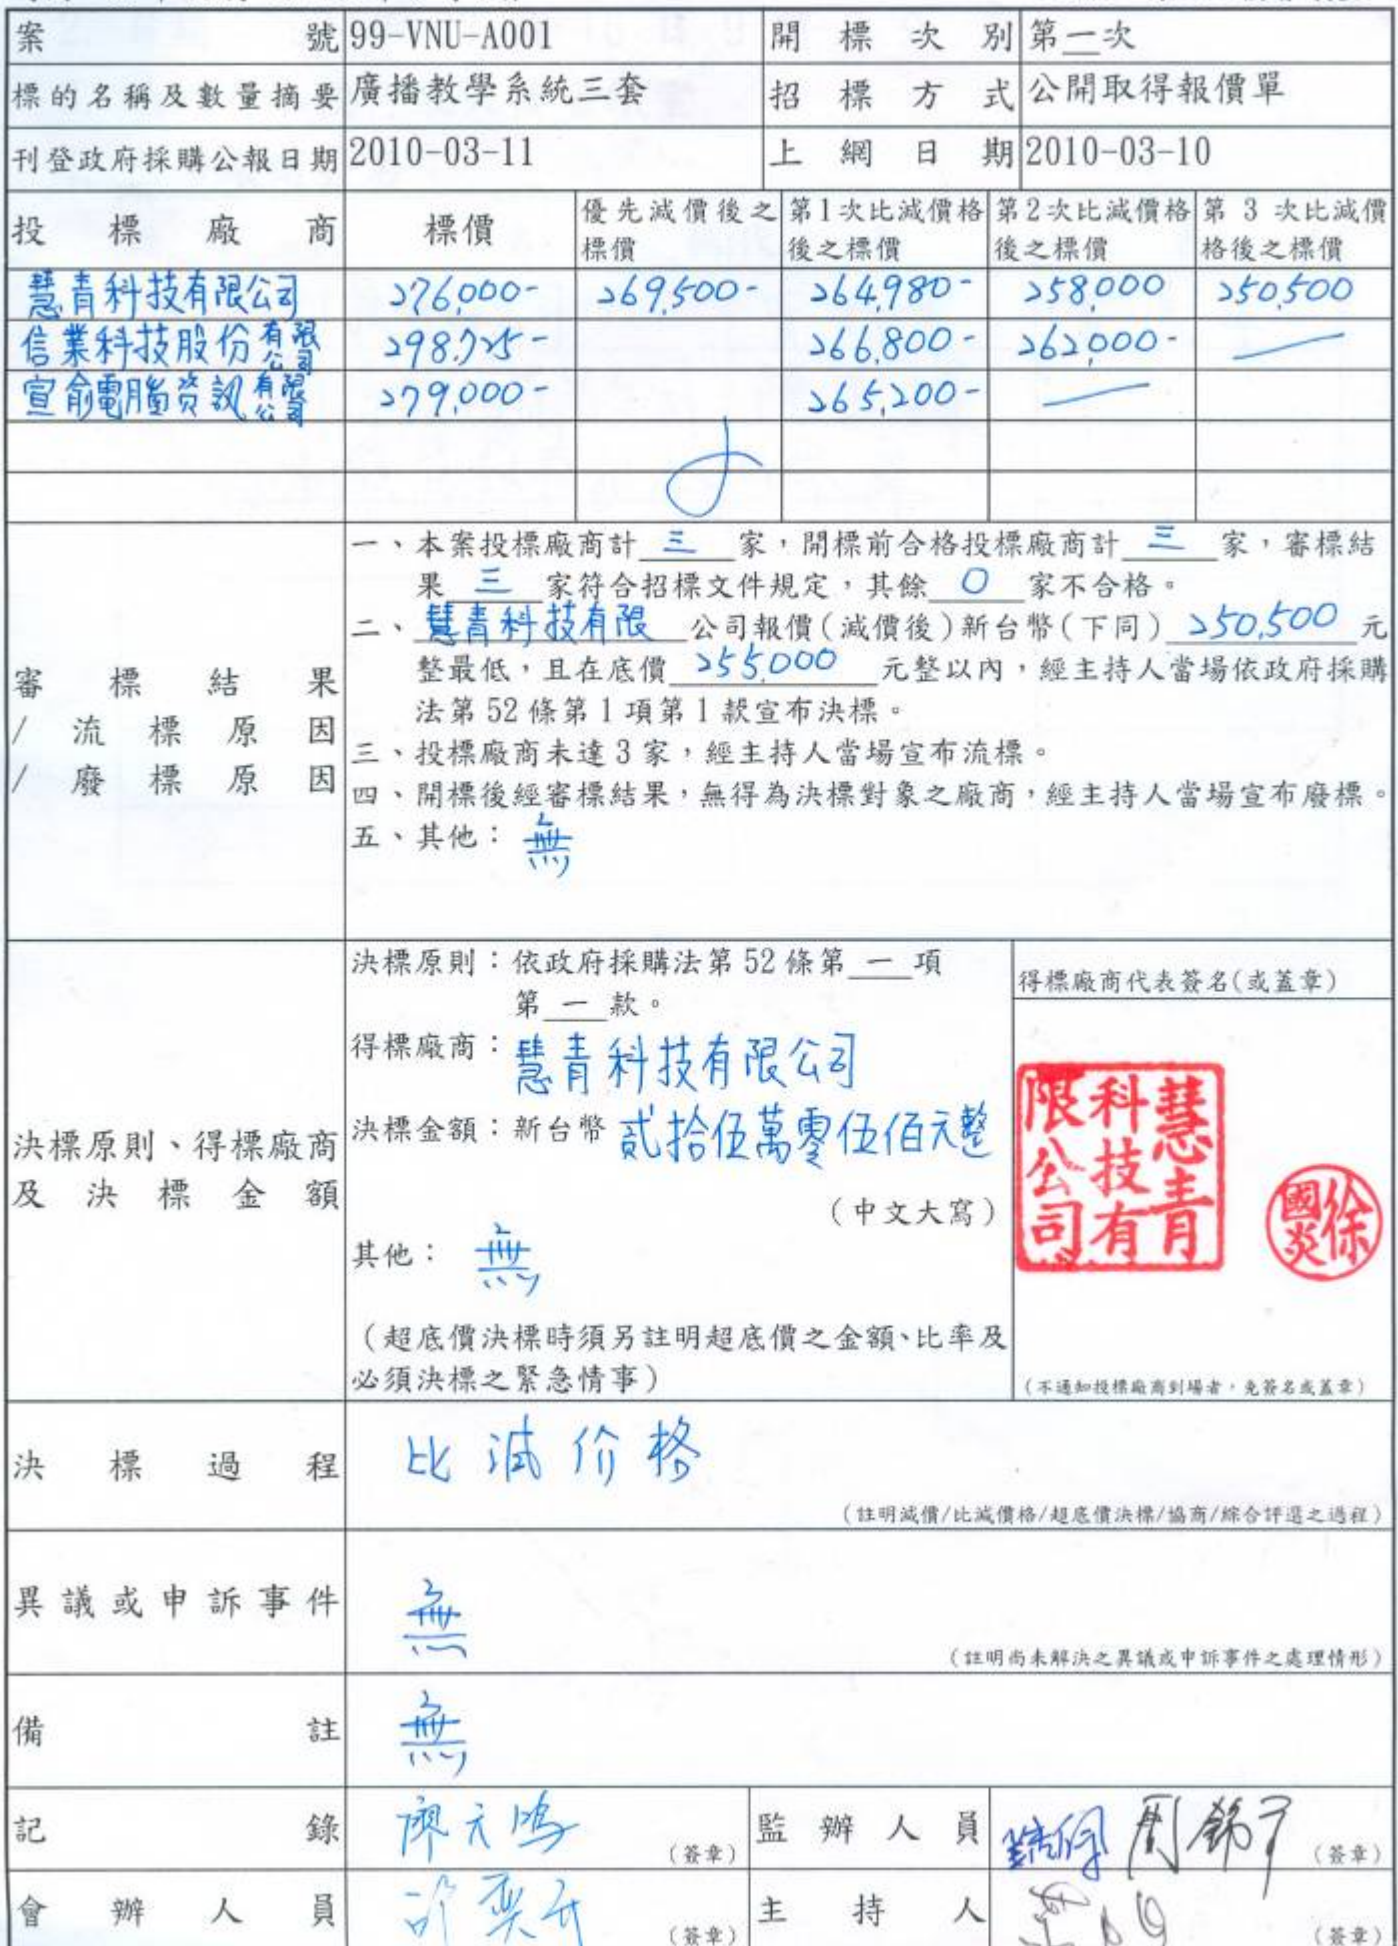 案號 99-VNU-A001 開標次別 第一次
標的名稱及數量摘要 廣播教學系統三套 招標方式 公開取得報價單
刊登政府採購公報日期 2010-03-11 上網日期 2010-03-10
投標廠商 標價 優先減價後之標價 第1次比減價格後之標價 第2次比減價格後之標價 第3次比減價格後之標價
慧青科技有限公司 276,000- 269,500- 264,980- 258,000 250,500
信業科技股份有限公司 298,725- 266,800- 262,000- —
宣俞電腦資訊有限公司 279,000- 265,200- —
審標結果
/流標原因
/廢標原因
一、本案投標廠商計 三 家,開標前合格投標廠商計 三 家,審標結
果 三 家符合招標文件規定,其餘 0 家不合格。
二、慧青科技有限 公司報價(減價後)新台幣(下同) 250,500 元
整最低,且在底價 255,000 元整以內,經主持人當場依政府採購
法第52條第1項第1款宣布決標。
三、投標廠商未達3家,經主持人當場宣布流標。
四、開標後經審標結果,無得為決標對象之廠商,經主持人當場宣布廢標。
五、其他:無
決標原則、得標廠商
及決標金額
決標原則:依政府採購法第52條第 一 項
第 一 款。
得標廠商:慧青科技有限公司
決標金額:新台幣 貳拾伍萬零伍佰元整
(中文大寫)
其他:無
(超底價決標時須另註明超底價之金額、比率及
必須決標之緊急情事)
得標廠商代表簽名(或蓋章)
慧青科技有限公司
徐國炎
(不通知投標廠商到場者,免簽名或蓋章)
決標過程 比減价格
(註明減價/比減價格/超底價決標/協商/綜合評選之過程)
異議或申訴事件 無
(註明尚未解決之異議或申訴事件之處理情形)
備註 無
記錄 (簽章) 監辦人員 (簽章)
會辦人員 (簽章) 主持人 (簽章)